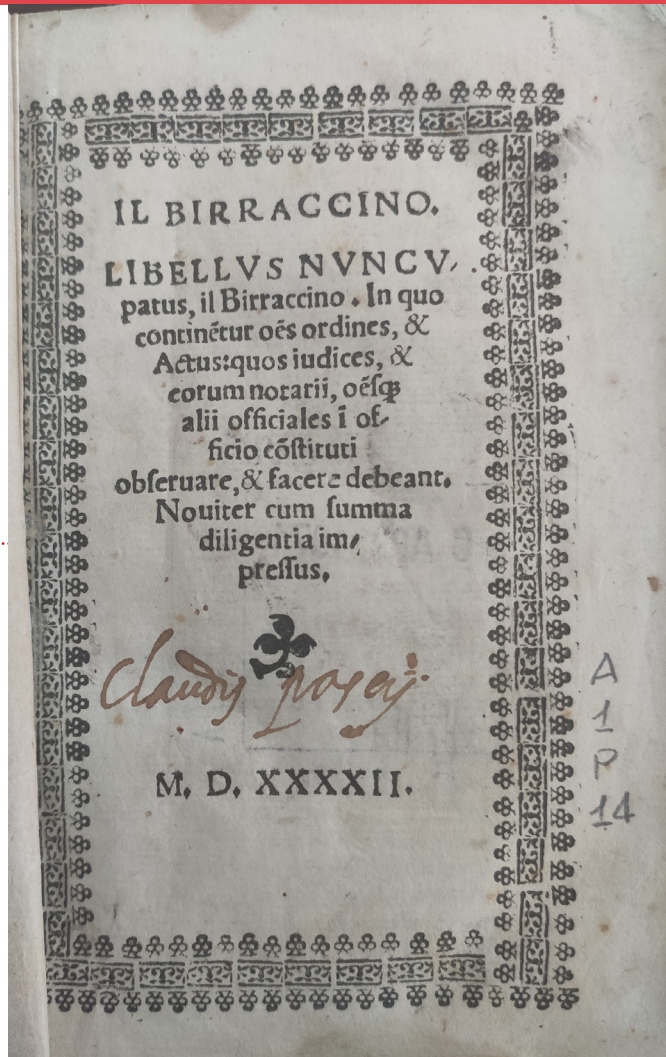 IL BIRRACCINO.
LIBELLVS NVNCV-
patus, il Birraccino. In quo
continẽtur oẽs ordines, &
Actus: quos iudices, &
eorum notarii, oẽsqꝫ
alii officiales ĩ of-
ficio cõstituti
obseruare, & facere debeant.
Nouiter cum summa
diligentia im-
pressus.
Claudij
M. D. XXXXII.
A
1
P
14